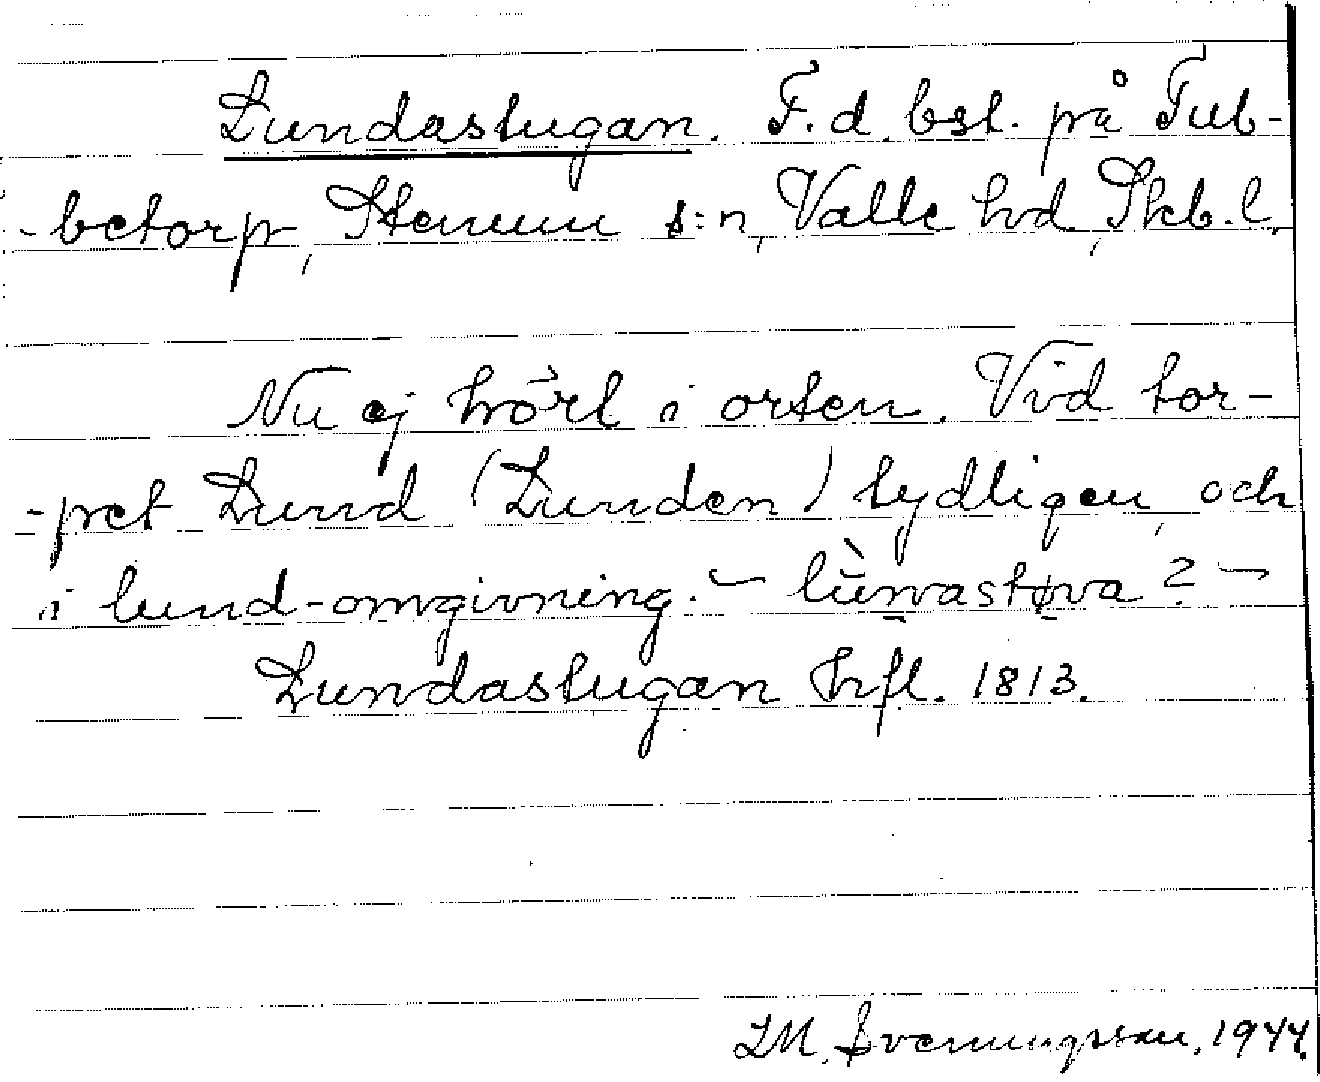 Lundastugan. F.d. bst. på Tub-
-betorp, Stenum s:n, Valle hd, Skb. l.
Nu ej hört i orten. Vid tor-
-pet Lund (Lunden) tydligen, och
i lund-omgivning. – lùnastøva? –
Lundastugan hfl. 1813.
LM. Svenungsson, 1944.